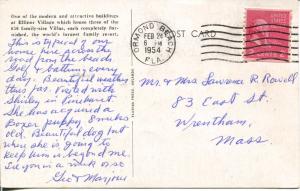 One of the modern and attractive buildings
of Ellinor Village which house three of the
650 family-size Villas, each completely fur-
nished, the world's largest family resort.
This is typical of our
home here across the
road from the beach
Golf & bathing every
day. Beautiful weather
thus far. Visited with
Shirley in Pinehurst.
She has acquired a
Boxer puppy 8 weeks
old. Beautiful dog but
when she is going to
keep him is beyond me.
See you in a week or so
Geo & Marjorie
POST CARD
ORMOND BEACH
FEB 26
6 PM
1954
FLA.
Mr. & Mrs Lawrence R. Rowell
83 East St.
Wrentham,
Mass.